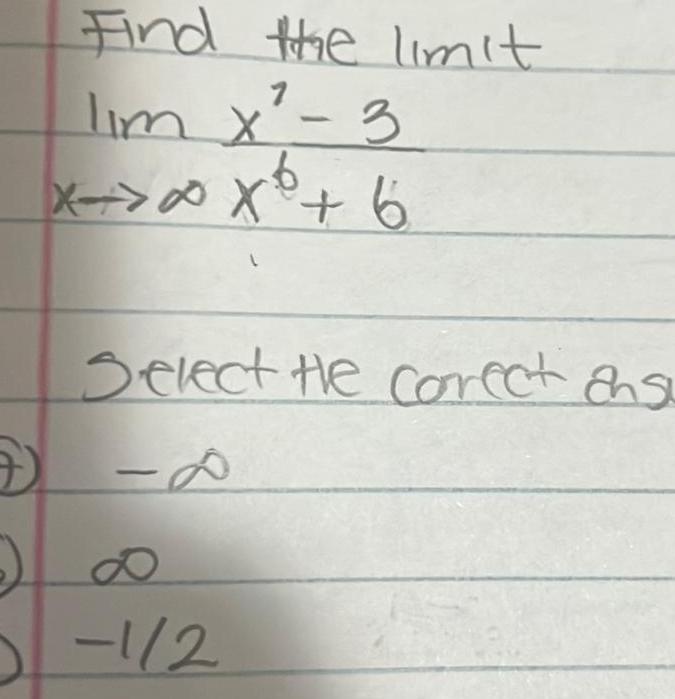 Find the limit
lim x⁷ - 3
x→∞ x⁶ + 6
Select the correct
- ∞
∞
-1/2